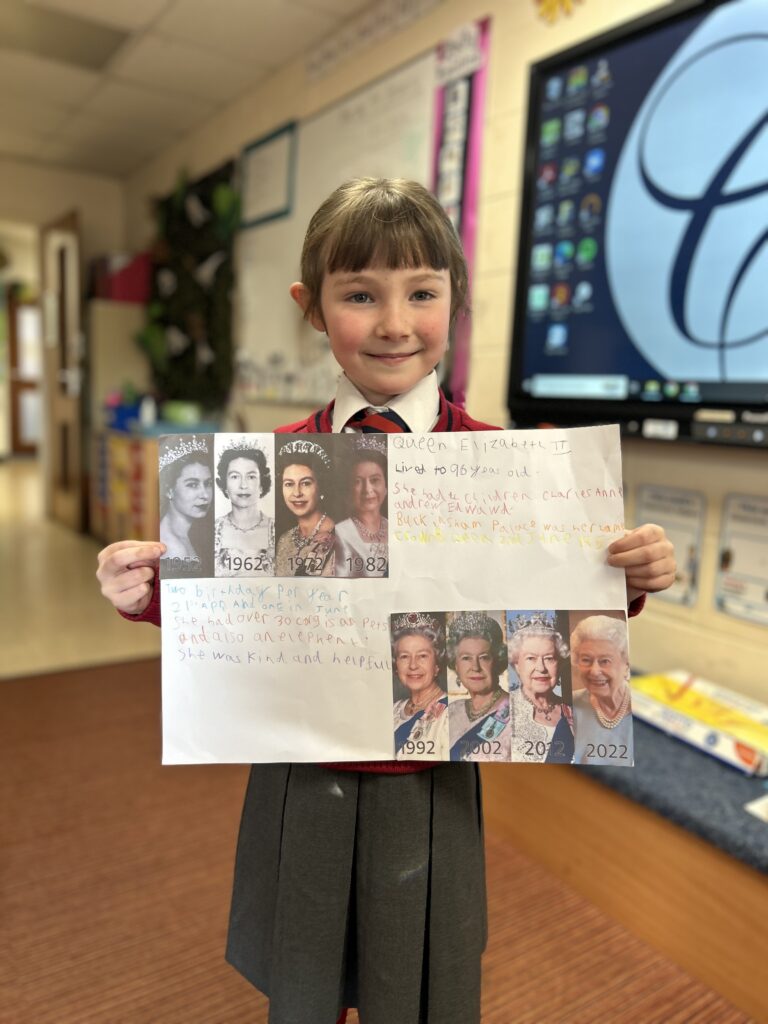 1952
1962
1972
1982
Queen Elizabeth II
Lived to 96 years old.
She had 4 children Charles Anne
andrew Edwawd.
Buckingham Palace was her
2nd June
Two birthday Per Year
21st APR And one in June
She had over 30 corgis as Pets
and also an elephent.
She was Kind and helpful
1992
2002
2012
2022